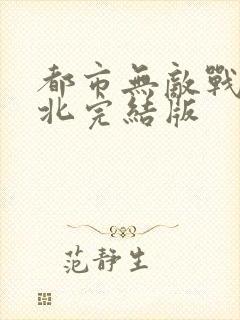 都市無敵戰
北完結版
范静生